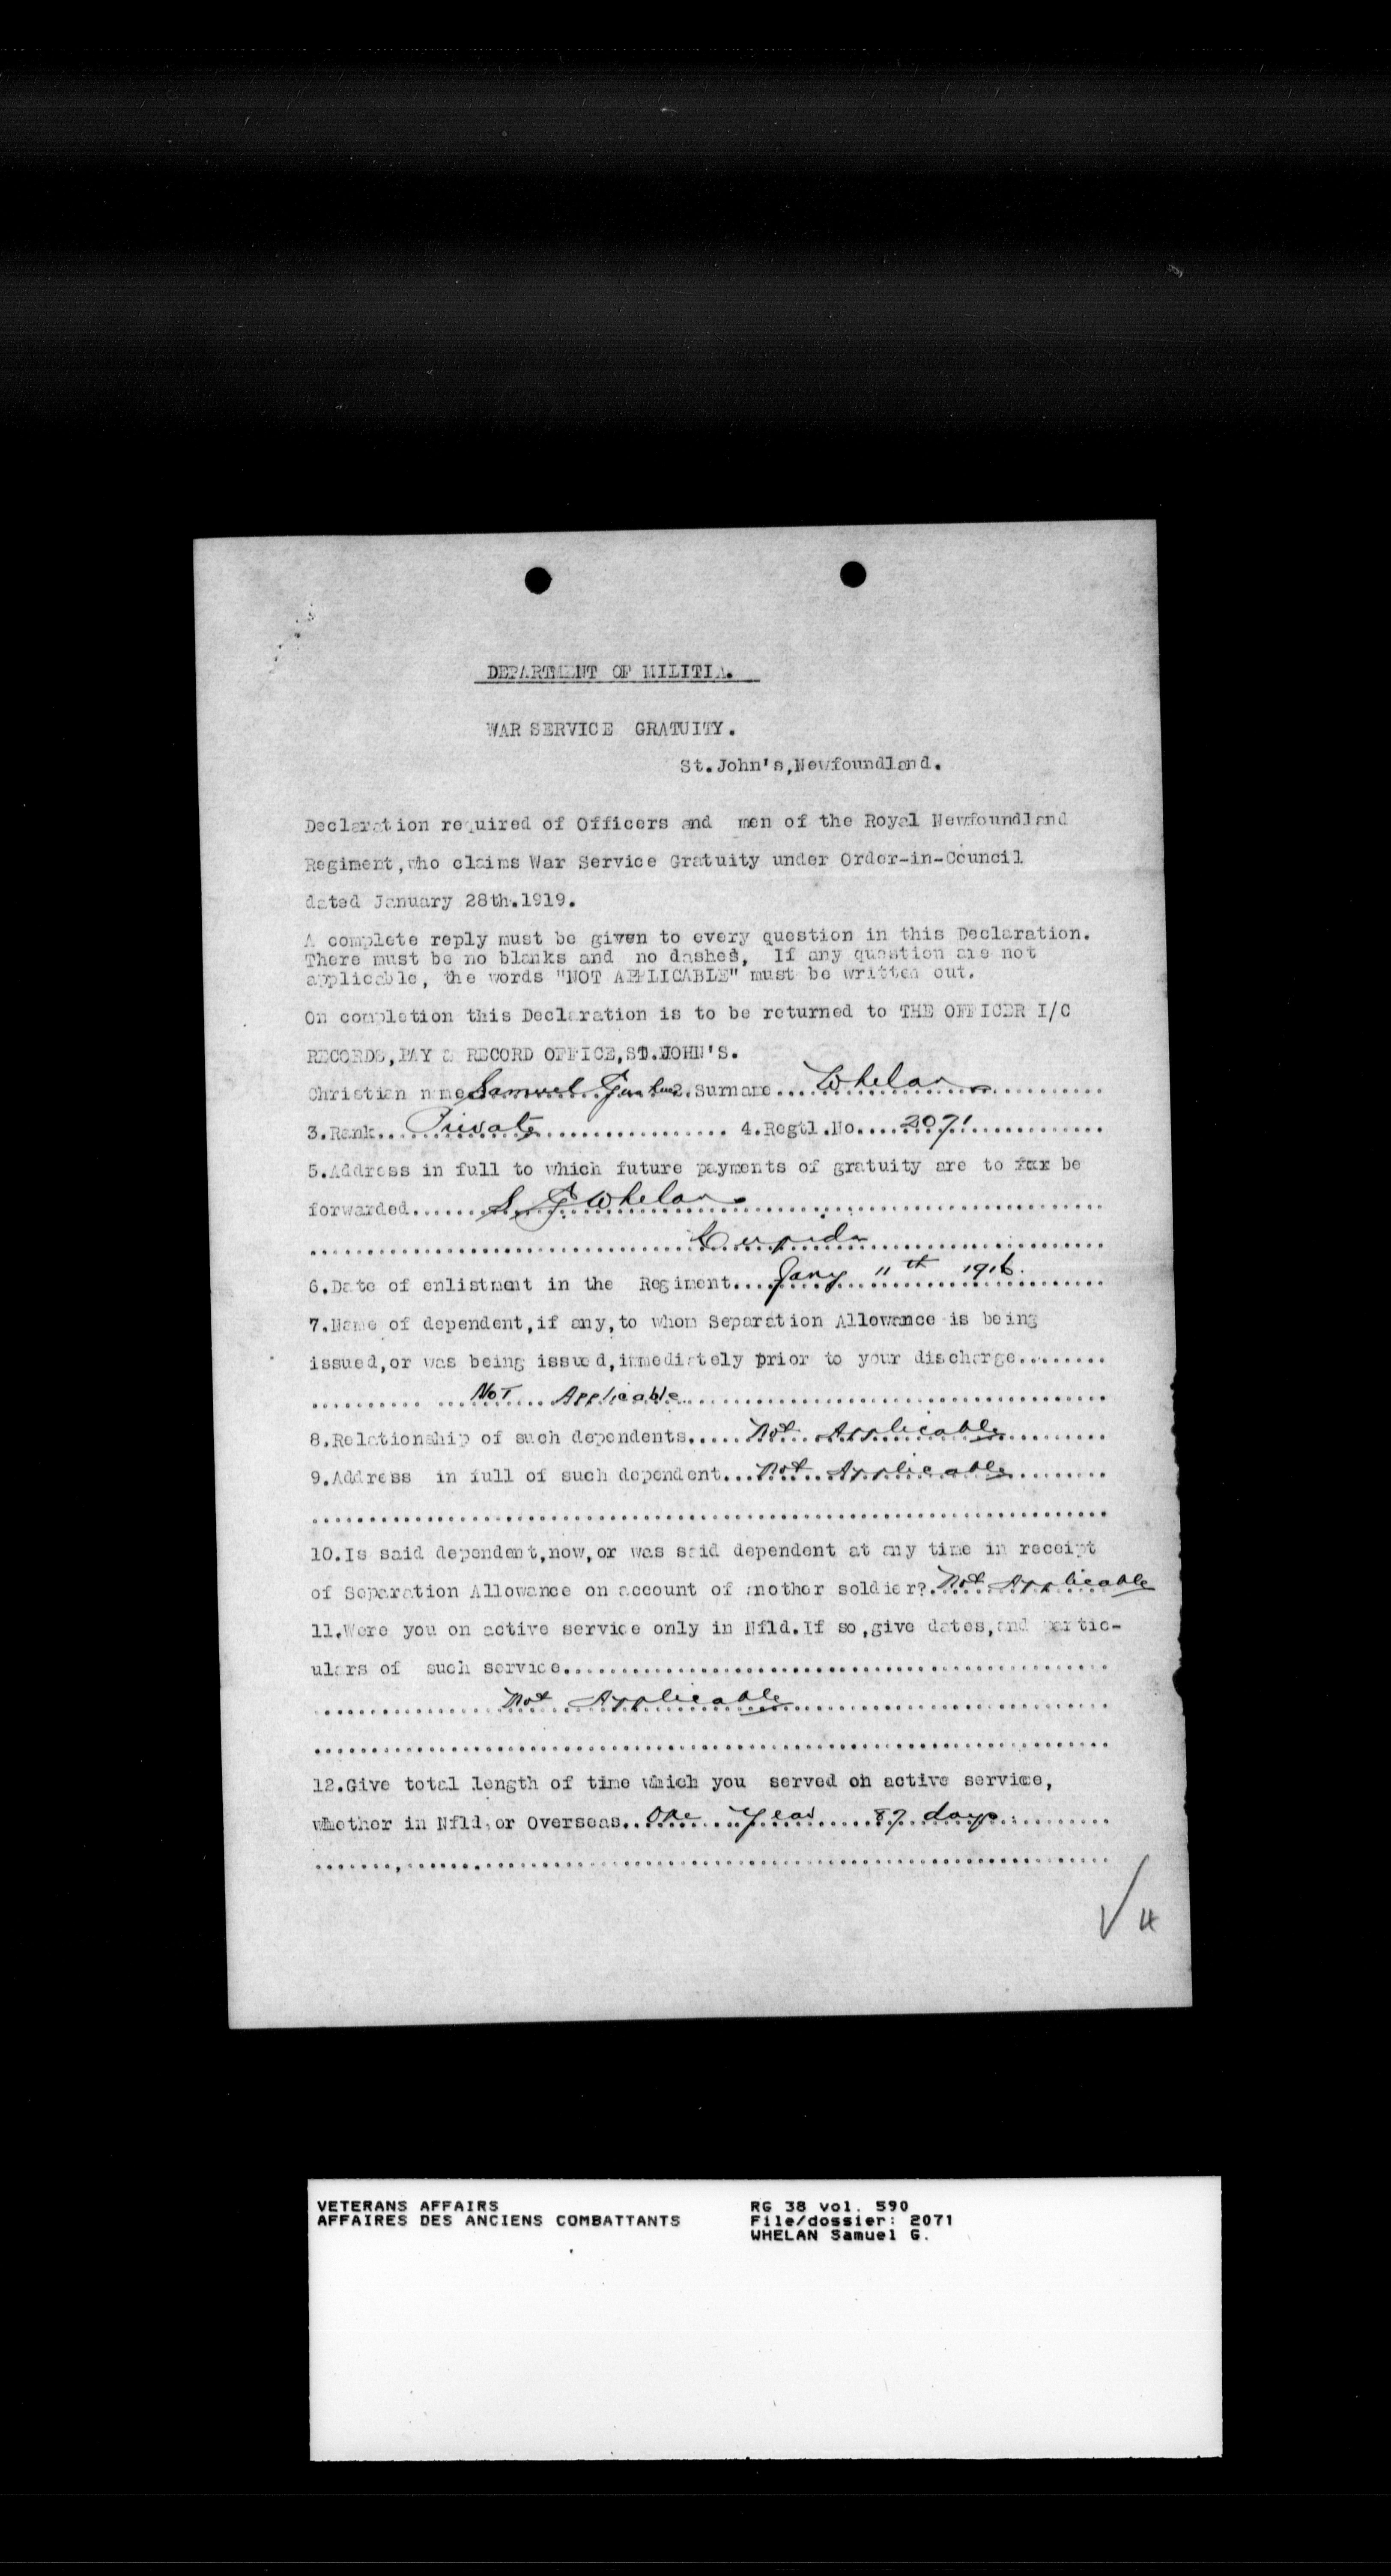 DEPARTMENT OF MILITIA.
WAR SERVICE GRATUITY.
St.John's,Newfoundland.
Declaration required of Officers and men of the Royal Newfoundland
Regiment,who claims War Service Gratuity under Order-in-Council
dated January 28th.1919.
A complete reply must be given to every question in this Declaration.
There must be no blanks and no dashes, If any question are not
applicable, the words "NOT APPLICABLE" must be written out.
On completion this Declaration is to be returned to THE OFFICER I/C
RECORDS,PAY & RECORD OFFICE,ST.JOHN'S.
Christian name Samuel 2.Surname....Whelan
3.Rank...Private 4.Regtl.No....2071
5.Address in full to which future payments of gratuity are to be
forwarded....S. G. Whelan
Cupids
6.Date of enlistment in the Regiment....Jany 11th 1916.
7.Name of dependent,if any,to whom Separation Allowance is being
issued,or was being issued,immediately prior to your discharge........
Not Applicable
8.Relationship of such dependents.....Not Applicable
9.Address in full of such dependent...Not Applicable
10.Is said dependent,now,or was said dependent at any time in receipt
of Separation Allowance on account of another soldier?.Not Applicable
11.Were you on active service only in Nfld.If so,give dates,and partic-
ulars of such service.
Not Applicable
12.Give total length of time which you served on active service,
whether in Nfld.or Overseas..One Year 87 days
VETERANS AFFAIRS RG 38 vol. 590
AFFAIRES DES ANCIENS COMBATTANTS File/dossier: 2071
WHELAN Samuel G.